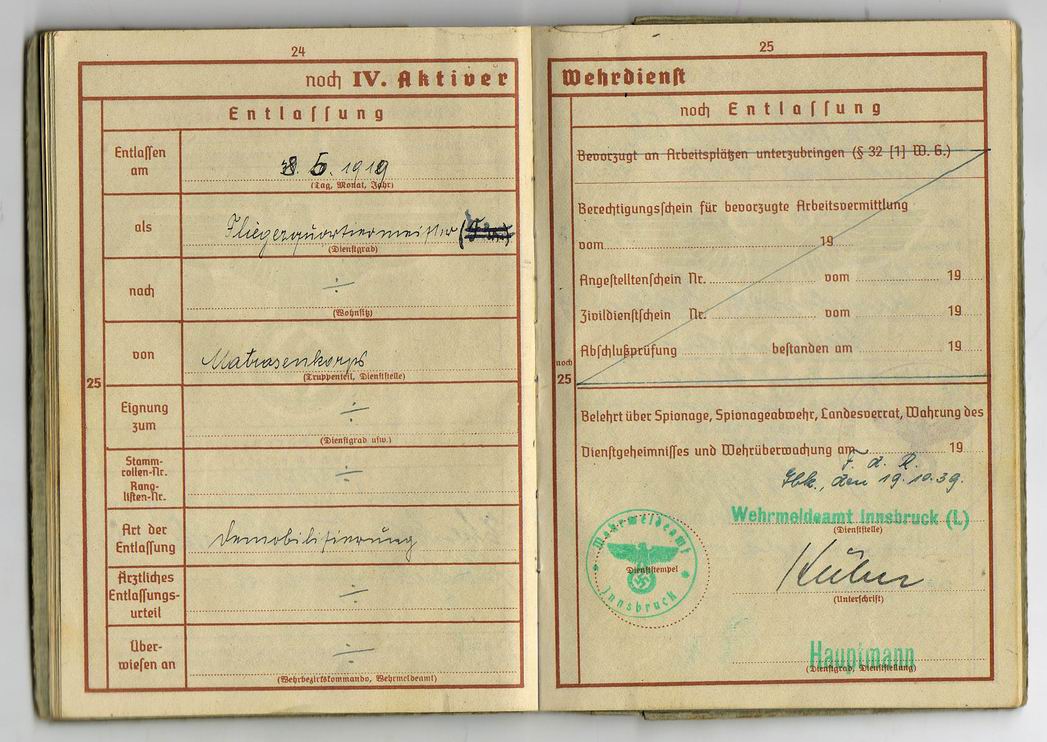 24
noch IV. Aktiver
Entlassung
Entlassen am
8. 5. 1919
(Tag, Monat, Jahr)
als
Fliegerquartiermeister
(Dienstgrad)
nach
÷
(Wohnsitz)
von
Matrosenkorps
(Truppenteil, Dienststelle)
25
Eignung zum
÷
(Dienstgrad usw.)
Stamm-
rollen-Nr.
Rang-
listen-Nr.
÷
Art der
Entlassung
Demobilisierung
Ärztliches
Entlassungs-
urteil
÷
Über-
wiesen an
÷
(Wehrbezirkskommando, Wehrmeldeamt)
25
Wehrdienst
noch Entlassung
Bevorzugt an Arbeitsplätzen unterzubringen (§ 32 [1] W. G.)
Berechtigungsschein für bevorzugte Arbeitsvermittlung
vom 19
Angestelltenschein Nr. vom 19
Zivildienstschein Nr. vom 19
Abschlußprüfung bestanden am 19
noch
25
Belehrt über Spionage, Spionageabwehr, Landesverrat, Wahrung des
Dienstgeheimnisses und Wehrüberwachung am 19
F. d. R.
Ibk., den 19.10.39.
Wehrmeldeamt Innsbruck (L)
(Dienststelle)
Wehrmeldeamt
Dienststempel
Innsbruck
(Unterschrift)
Hauptmann
(Dienstgrad, Dienststellung)